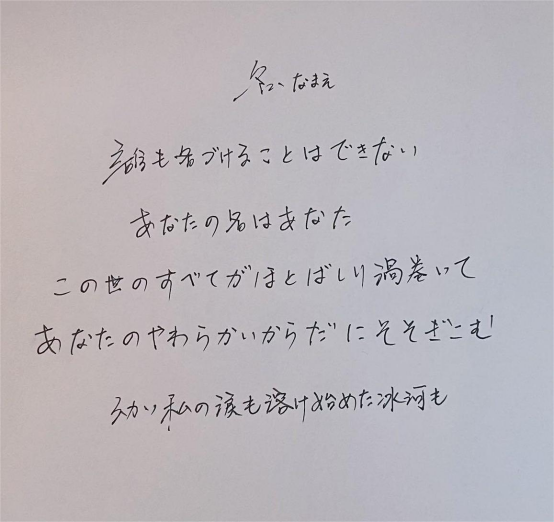 名 なまえ
誰も名づけることはできない
あなたの名はあなた
この世のすべてがほとばしり渦巻いて
あなたのやわらかいからだにそそぎこむ
幼い私の涙も溶け始めた氷河も